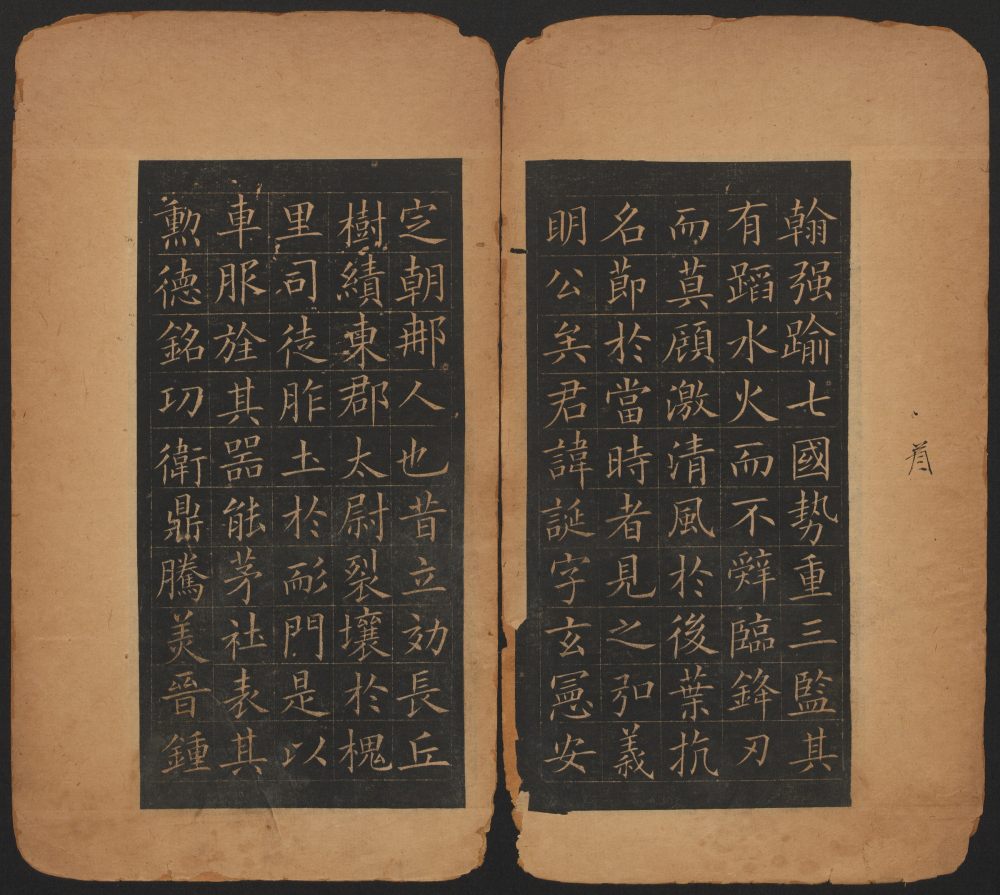 翰强踰七國勢重三監其
有蹈水火而不辤臨鋒刃
而莫顧激清風於後葉抗
名節於當時者見之弘義
明公矣君諱誕字玄憲安
定朝那人也昔立効長丘
樹績東郡太尉裂壤於槐
里司徒胙土於耏門是以
車服旌其器能茅社表其
勲德銘功衛鼎騰美晉鍾